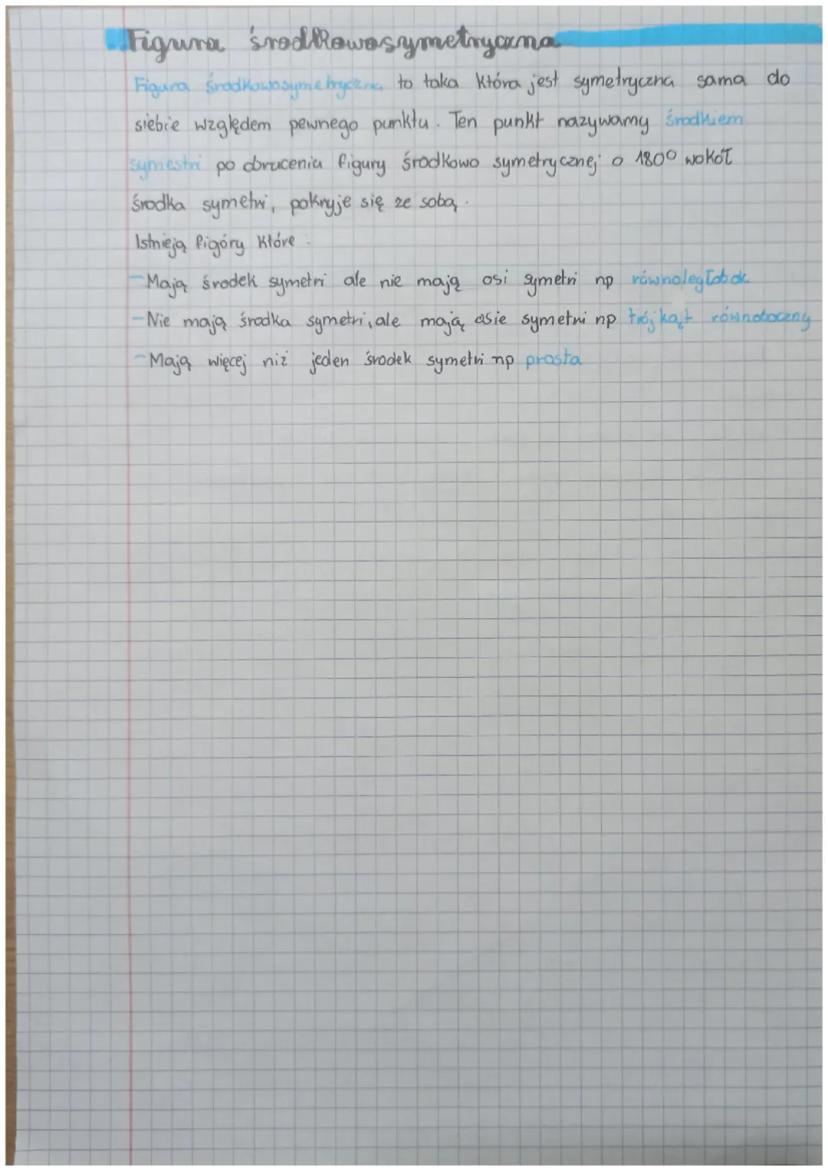 Figura środkowosymetryczna
Figura środkowosymetryczna to taka która jest symetryczna sama do
siebie względem pewnego punktu. Ten punkt nazywamy środkiem
symestri po obruceniu figury środkowo symetrycznej o 180° wokół
środka symetri, pokryje się ze sobą.
Istnieją figóry które:
-Mają środek symetri ale nie mają osi symetri np równoległobok
-Nie mają środka symetri, ale mają osie symetri np trójkąt równoboczny
-Mają więcej niż jeden środek symetri np prosta